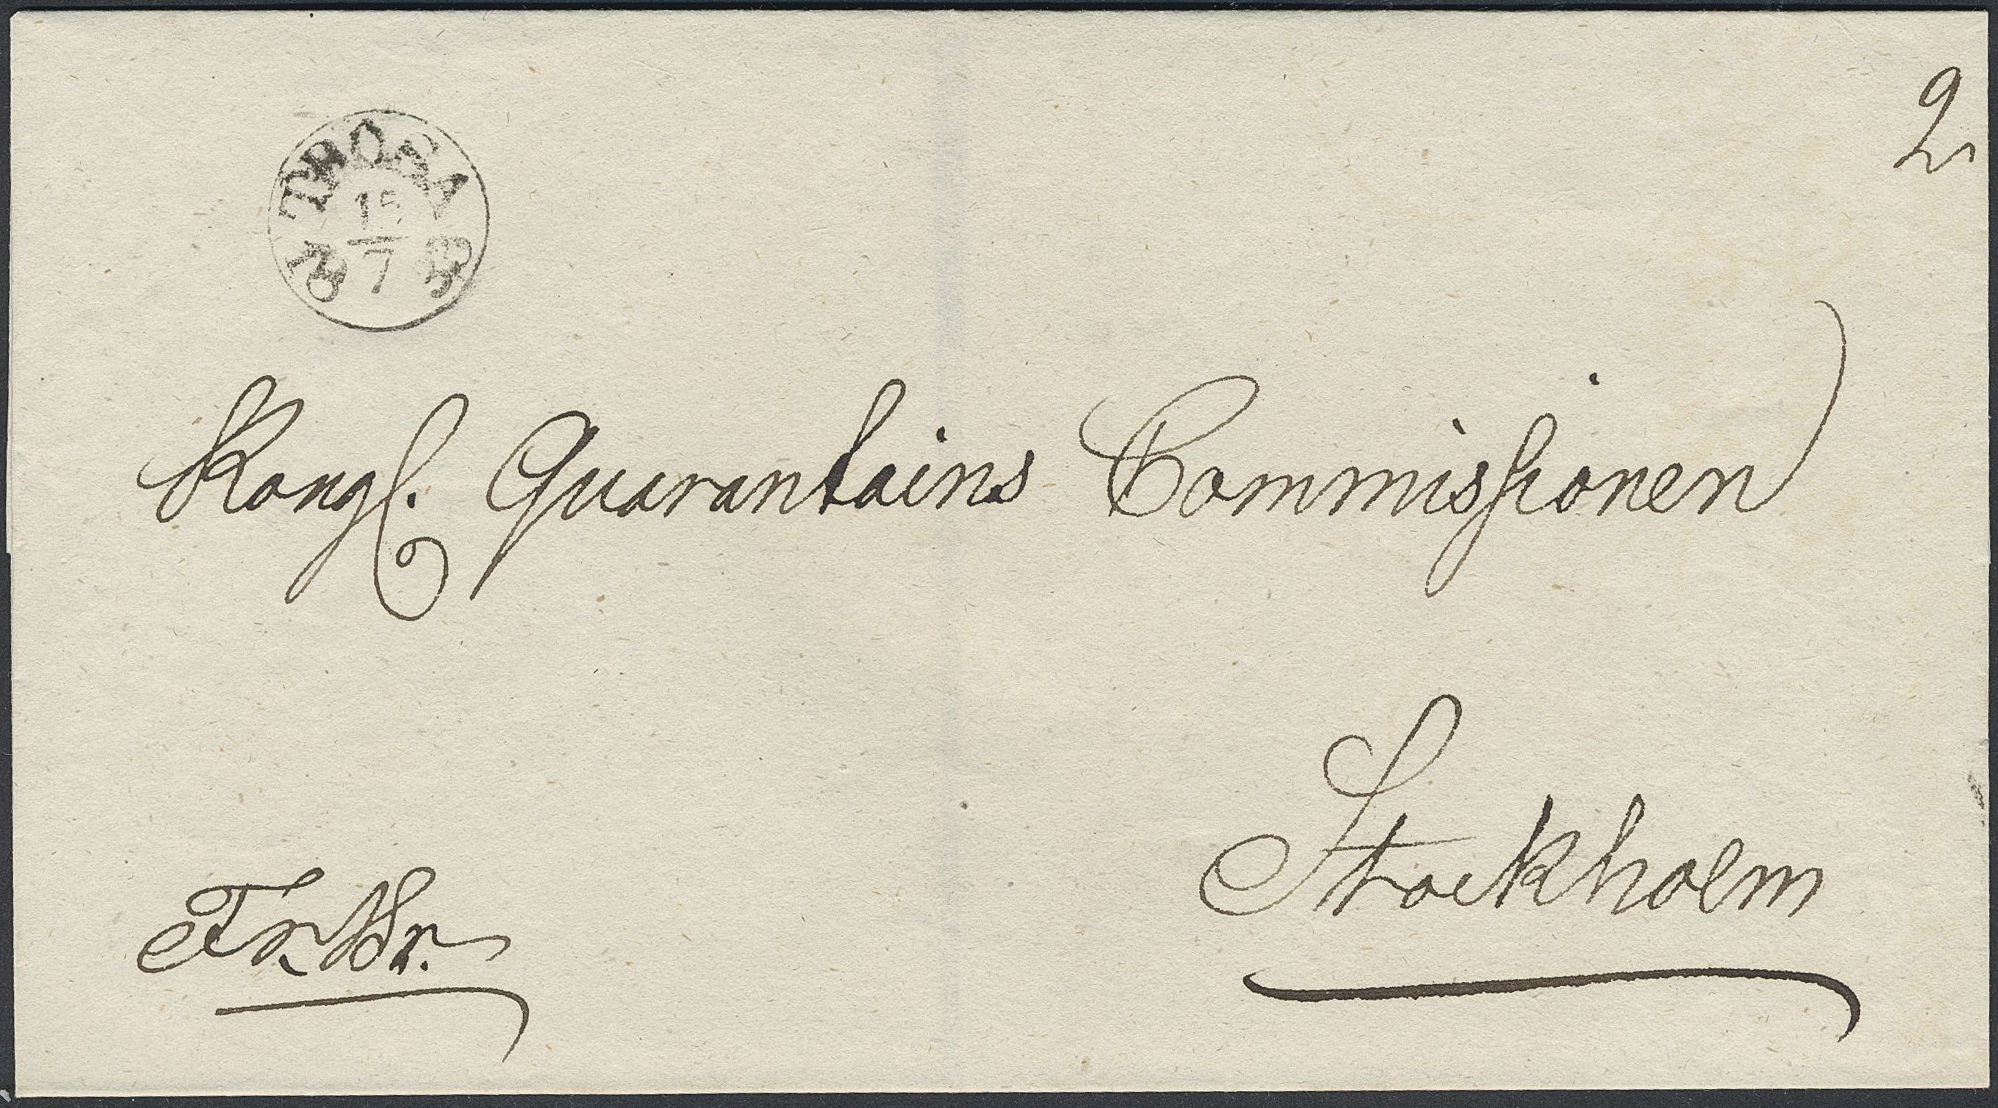 2
TROSA
15
7
Kongl. Quarantains Commissionen
Stockholm
Fr. Br.